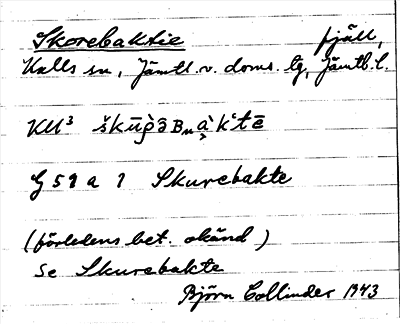 Skorebaktie fjäll,
Kalls sn, Jämtl. v. doms. lg, Jämtl. l.
KU³
G 5 9 a 1 Skurebakte
(förledens bet. okänd)
Se Skurebakte
Björn Collinder 1943